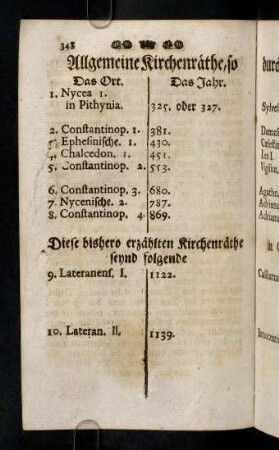 348
Allgemeine Kirchenräthe, so
Das Ort. Das Jahr.
1. Nycea 1.
in Pithynia. 325. oder 327.
2. Constantinop. 1. 381.
3. Ephesinische. 1. 430.
4. Chalcedon. 1. 451.
5. Constantinop. 2. 553.
6. Constantinop. 3. 680.
7. Nycenische. 2. 787.
8. Constantinop. 4. 869.
Diese bishero erzählten Kirchenräthe
seynd folgende
9. Lateranens. I. 1122.
10. Lateran. II. 1139.
durch
Sylves
Damas
Cœlestin
Leo I.
Vigilius
Agatho
Adrian
Adrian
in
Callixtus
Innocentius